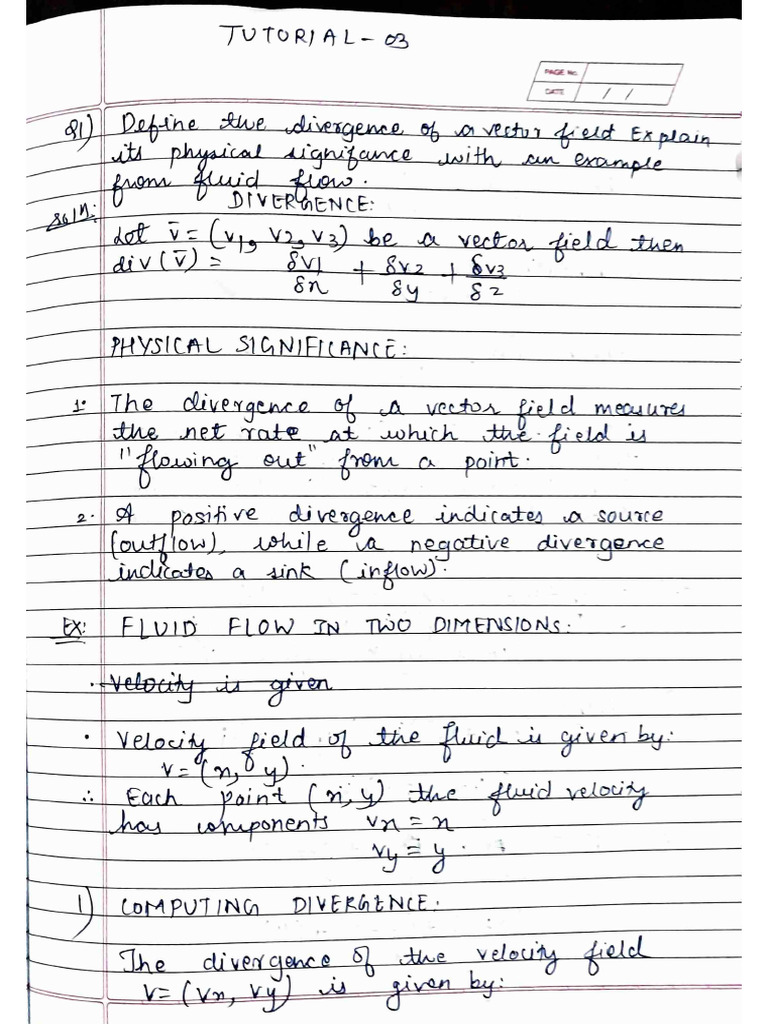 TUTORIAL - 03
PAGE No.
DATE / /
Q1) Define the divergence of a vector field Explain
its physical signifance with an example
from fluid flow.
Soln: DIVERGENCE:
Let v̄ = (v1, v2, v3) be a vector field then
div(v̄) = δv1/δx + δv2/δy + δv3/δz
PHYSICAL SIGNIFICANCE:
1. The divergence of a vector field measures
the net rate at which the field is
"flowing out" from a point.
2. A positive divergence indicates a source
(outflow), while a negative divergence
indicates a sink (inflow).
EX: FLUID FLOW IN TWO DIMENSIONS:
. Velocity is given
. Velocity field of the fluid is given by:
v = (x, y).
∴ Each point (x, y) the fluid velocity
has components vx = x
vy = y.
1) COMPUTING DIVERGENCE.
The divergence of the velocity field
v = (vx, vy) is given by: